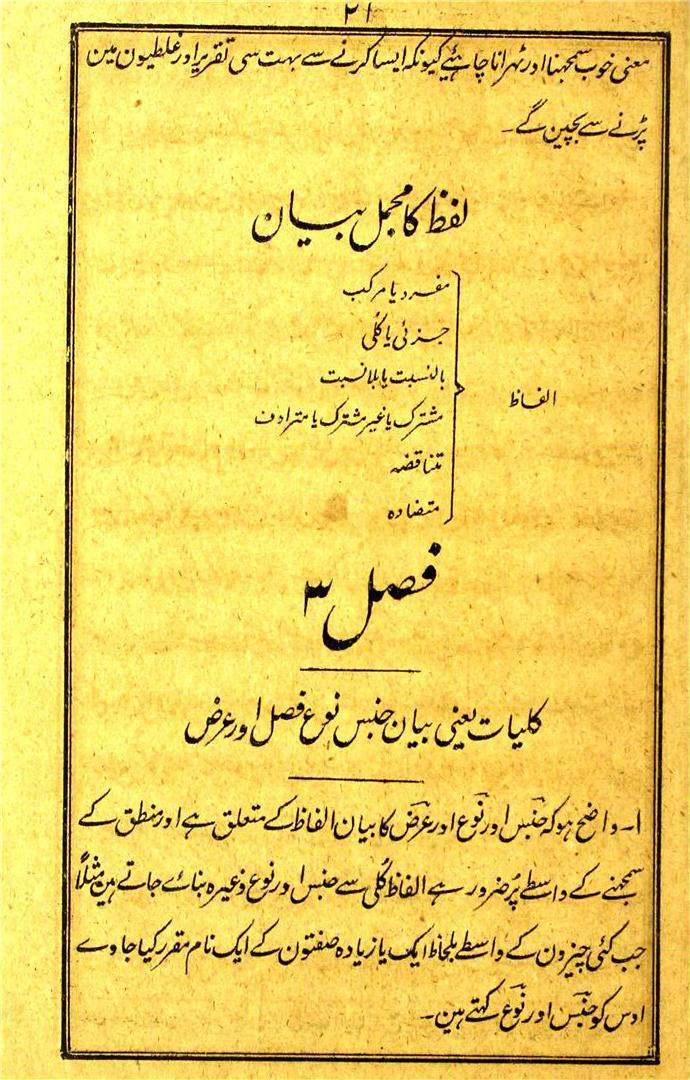 ۲۱
معنی خوب سمجھنا اور ٹہرانا چاہئیے کیونکہ ایسا کرنے سے بہت سی تقریر اور غلطیون مین
پڑنے سے بچین گے۔
لفظ کا مجمل بیان
مفرد یا مرکب
جزئی یا کُلی
بالنسبت یا بلا نسبت
الفاظ
مشترک یا غیر مشترک یا مترادف
تناقضہ
متضادہ
فصل ۳
کلیات یعنی بیان جنس نوع فصل اور عرض
۱۔ واضح ہو کہ جنس اور نوع اور عرض کا بیان الفاظ کے متعلق ہے اور منطق کے
سمجھنے کے واسطے پُر ضرور ہے الفاظ کُلی سے جنس اور نوع وغیرہ بنائے جاتے ہین مثلاً
جب کئی چیزون کے واسطے بلحاظ ایک یا زیادہ صفتون کے ایک نام مقرر کیا جاوے
اوس کو جنس اور نوع کہتے ہین۔